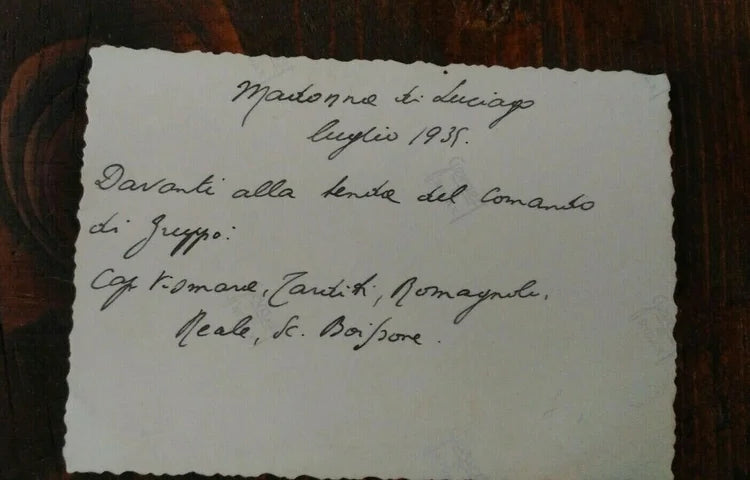 Madonna di Luciago
luglio 1935.
Davanti alla tenda del Comando
di Gruppo:
Cap. Tarditi, Romagnoli,
Reale, Sc. Boissone.